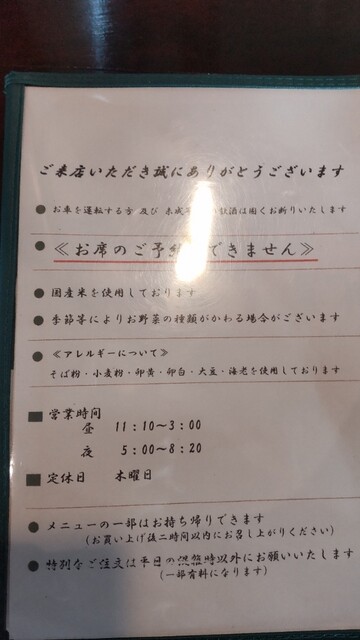 ご来店いただき誠にありがとうございます
● お車を運転する方 及び 未成年 飲酒は固くお断りいたします
● ≪お席のご予約 できません≫
● 国産米を使用しております
● 季節等によりお野菜の種類がかわる場合がございます
● ≪アレルギーについて≫
そば粉・小麦粉・卵黄・卵白・大豆・海老を使用しております
■ 営業時間
昼 11:10〜3:00
夜 5:00〜8:20
■ 定休日 木曜日
● メニューの一部はお持ち帰りできます
(お買い上げ後二時間以内にお召し上がりください)
● 特別なご注文は平日の混雑時以外にお願いいたします
(一部有料になります)